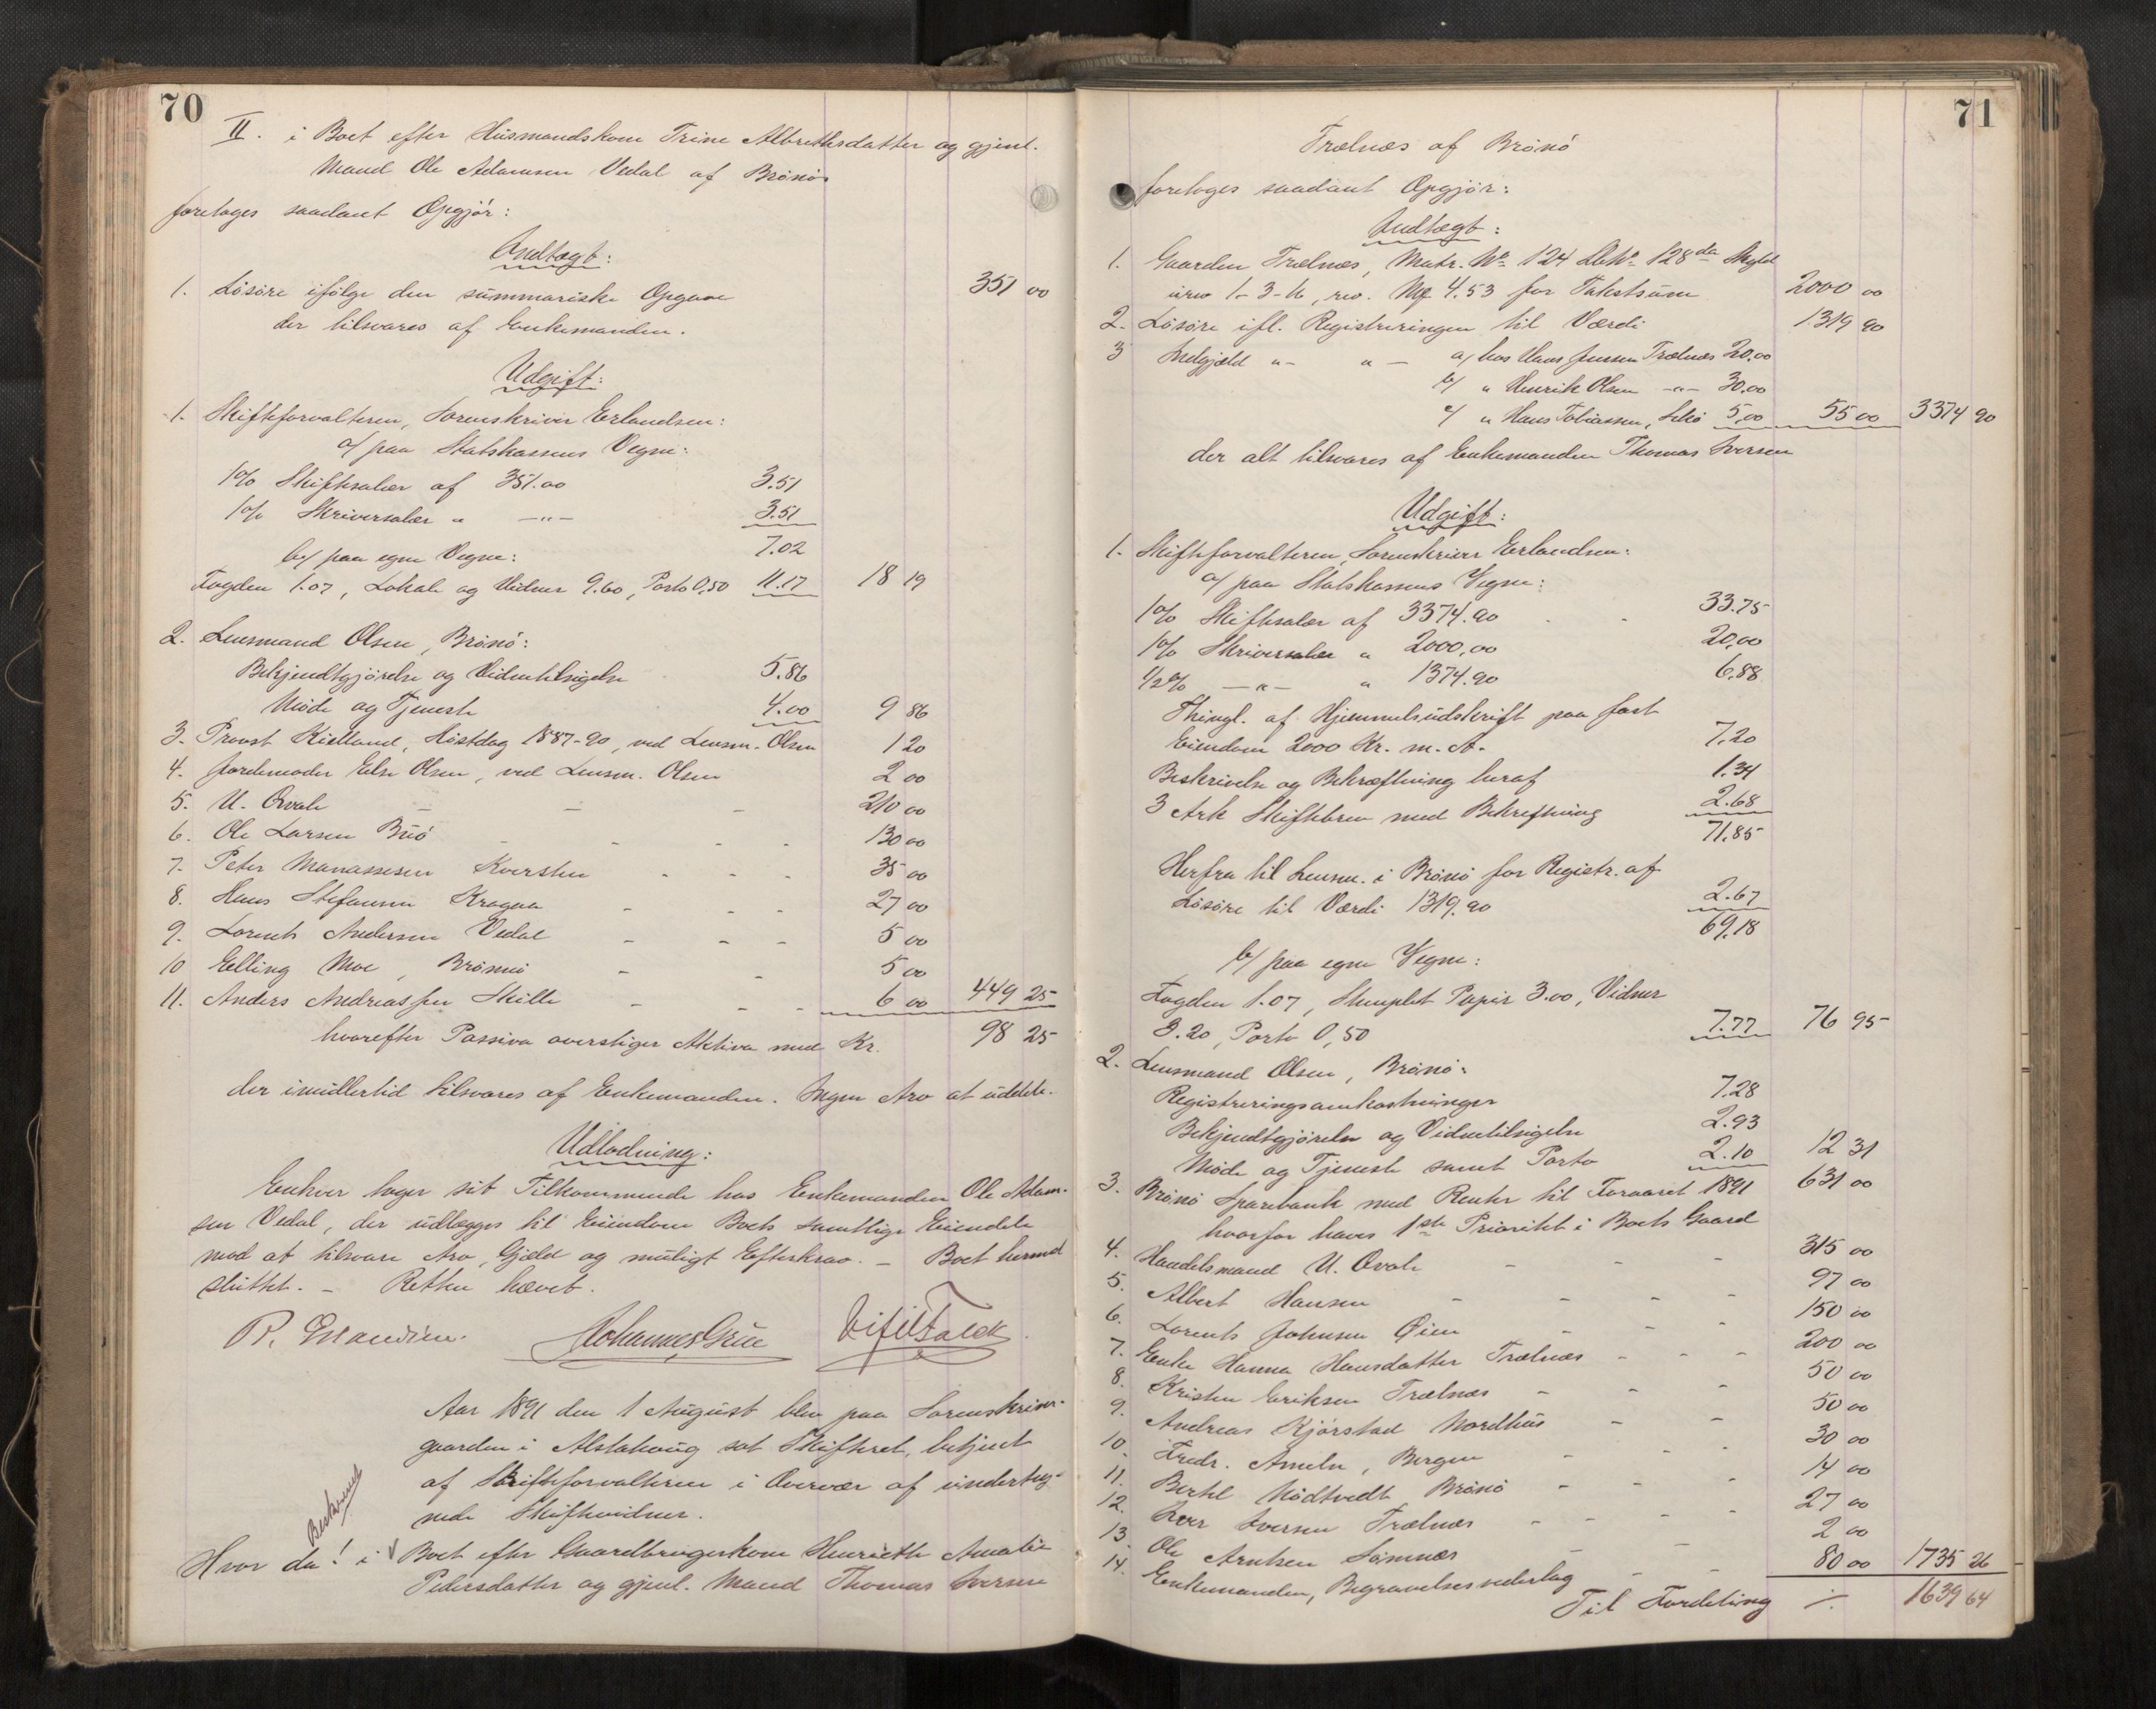 70
II. i Boet efter Husmandskone Trine Albrethsdatter og gjenl.
Mand Ole Adamsen Vedal af Brönö
foretoges saadant Opgjör:
Indtægt:
1. Lösöre ifölge den summariske Opgave 351 00
der tilsvares af Enkemanden.
Udgift:
1. Skifteforvalteren, Sorenskriver Erlandsen:
a/ paa Statskassens Vegne:
1% Skiftesalær af 351.00 3.51
1% Skriversalær " -"- 3.51
7.02
b/ paa egne Vegne:
Fogden 1.07, Lokale og Vidner 9.60, Porto 0,50 11.17 18 19
2. Lensmand Olsen, Brönö:
Bekjendtgjörelse og Vidnetilsigelse 5.86
Möde og Tjeneste 4.00 9 86
3. Provst Kielland, Höstdag 1887-90, ved Lensm. Olsen 1 20
4. Jordemoder Else Olsen, ved Lensm. Olsen 2 00
5. U. Qvale - - - 210 00
6. Ole Larsen Buö - - - - 130 00
7. Peter Manassesen Kversten - - - 35 00
8. Hans Stefansen Kragaa - - - 27 00
9. Lorents Andersen Vedal - - - 5 00
10 Elling Moe, Brönnö - - 5 00
11. Anders Andreassen Skille - - - 6 00 449 25
hvorefter Passiva overstiger Aktiva med Kr. 98 25
der imidlertid tilsvares af Enkemanden. Ingen Arv at uddele.
Udlodning:
Enhver tager sit Tilkommende hos Enkemanden Ole Adam-
sen Vedal, der udlægges til Eiendom Boets samtlige Eiendele
mod at tilsvare Arv, Gjæld og muligt Efterkrav. - Boet hermed
sluttet. - Retten hævet.
R. Erlandsen. Johannes Grue
Aar 1891 den 1 August blev paa Sorenskriver-
gaarden i Alstahoug sat Skifteret, betjent
af Skifteforvalteren i Overvær af underteg-
nede Skiftevidner.
Hvor da! i Boet efter Gaardbrugerkone Henriette Amalie
Pedersdatter og gjenl. Mand Thomas Iversen
71
Trælnæs af Brönö
foretoges saadant Opgjör:
Indtægt:
1. Gaarden Trælnæs, Matr. No 124 LNo 128da Skyld
urev 1-3-16, rev. Mk 4.53 for Takstsum 2000 00
2. Lösöre ifl. Registreringen til Værdi 1319 90
3 Indgjæld "- "- a/ hos Hans Jensen Trælnæs 20.00
b/ " Henrik Olsen -"- 30.00
c/ " Hans Tobiassen, 5,00 55 00 3374 90
der alt tilsvares af Enkemanden Thomas Iversen
Udgift:
1. Skifteforvalteren, Sorenskriver Erlandsen:
a/ paa Statskassens Vegne:
1% Skiftesalær af 3374.90 33.75
1% Skriversalær " 2000,00 20,00
1/2% -"- " 1374.90 6.88
Thingl. af Hjemmelsudskrift paa fast
Eiendom 2000 Kr. m. A. 7.20
Beskrivelse og Bekræftning heraf 1.34
3 Ark Skiftebrev med Bekreftning 2.68
71.85
Herfra til Lensm. i Brönö for Registr. af
Lösöre til Værdi 1319.90 2.67
69,18
b/ paa egne Vegne:
Fogden 1.07, Stemplet Papir 3.00, Vidner
3.20, Porto 0,50 7.77 76 95
2. Lensmand Olsen, Brönö:
Registreringsomkostninger 7.28
Bekjendtgjörelse og Vidnetilsigelse 2.93
Möde og Tjeneste samt Porto 2.10 12 31
3. Brönö Sparebank med Renter til Foraaret 1891 631 00
hvorfor haves 1ste Prioritet i Boets Gaard
4. Handelsmand U. Qvale - - - 315 00
5. Albert Hansen - - - - 97 00
6. Lorents Johnsen Öien - - - 150 00
7. Enke Hanna Hansdatter Trælnæs - - - 200 00
8. Kristen Eriksen Trælnæs - - - 50 00
9. Andreas Kjörstad Nordhus - - 50 00
10. Fredr. Ameln, Bergen - - - 30 00
11. Bertel Nödtvedt Brönö - - - 14 00
12. Iver Iversen Trælnæs - - - - 27 00
13. Ole Arntsen Sömnæs - - 2 00
14. Enkemanden, Begravelsesvederlag - - 80 00 1735 26
Til Fordeling ./. 1639 64